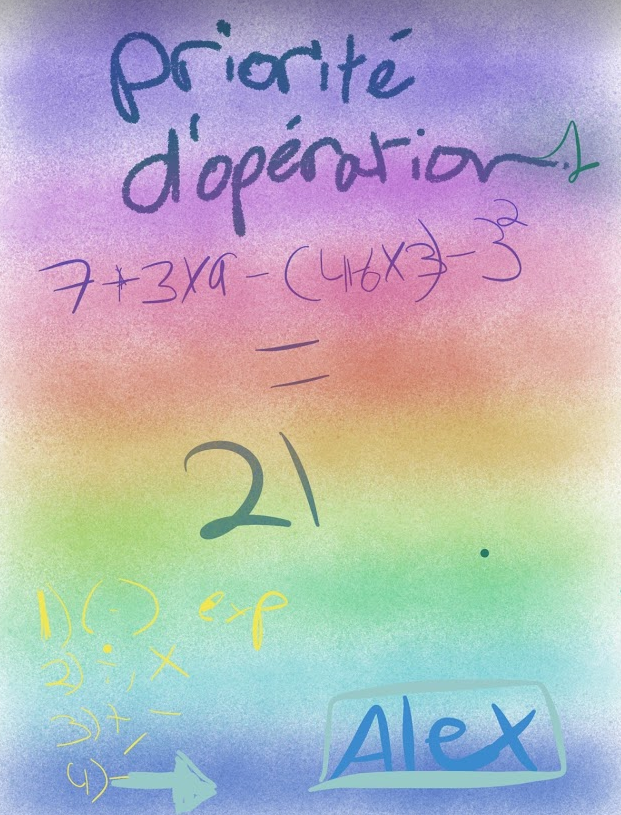 Priorité
d'opération 1
7+3x9-(4+6x3)-3²
=
21
1) ( ) exp
2) ÷, x
3) + -
4) →
Alex